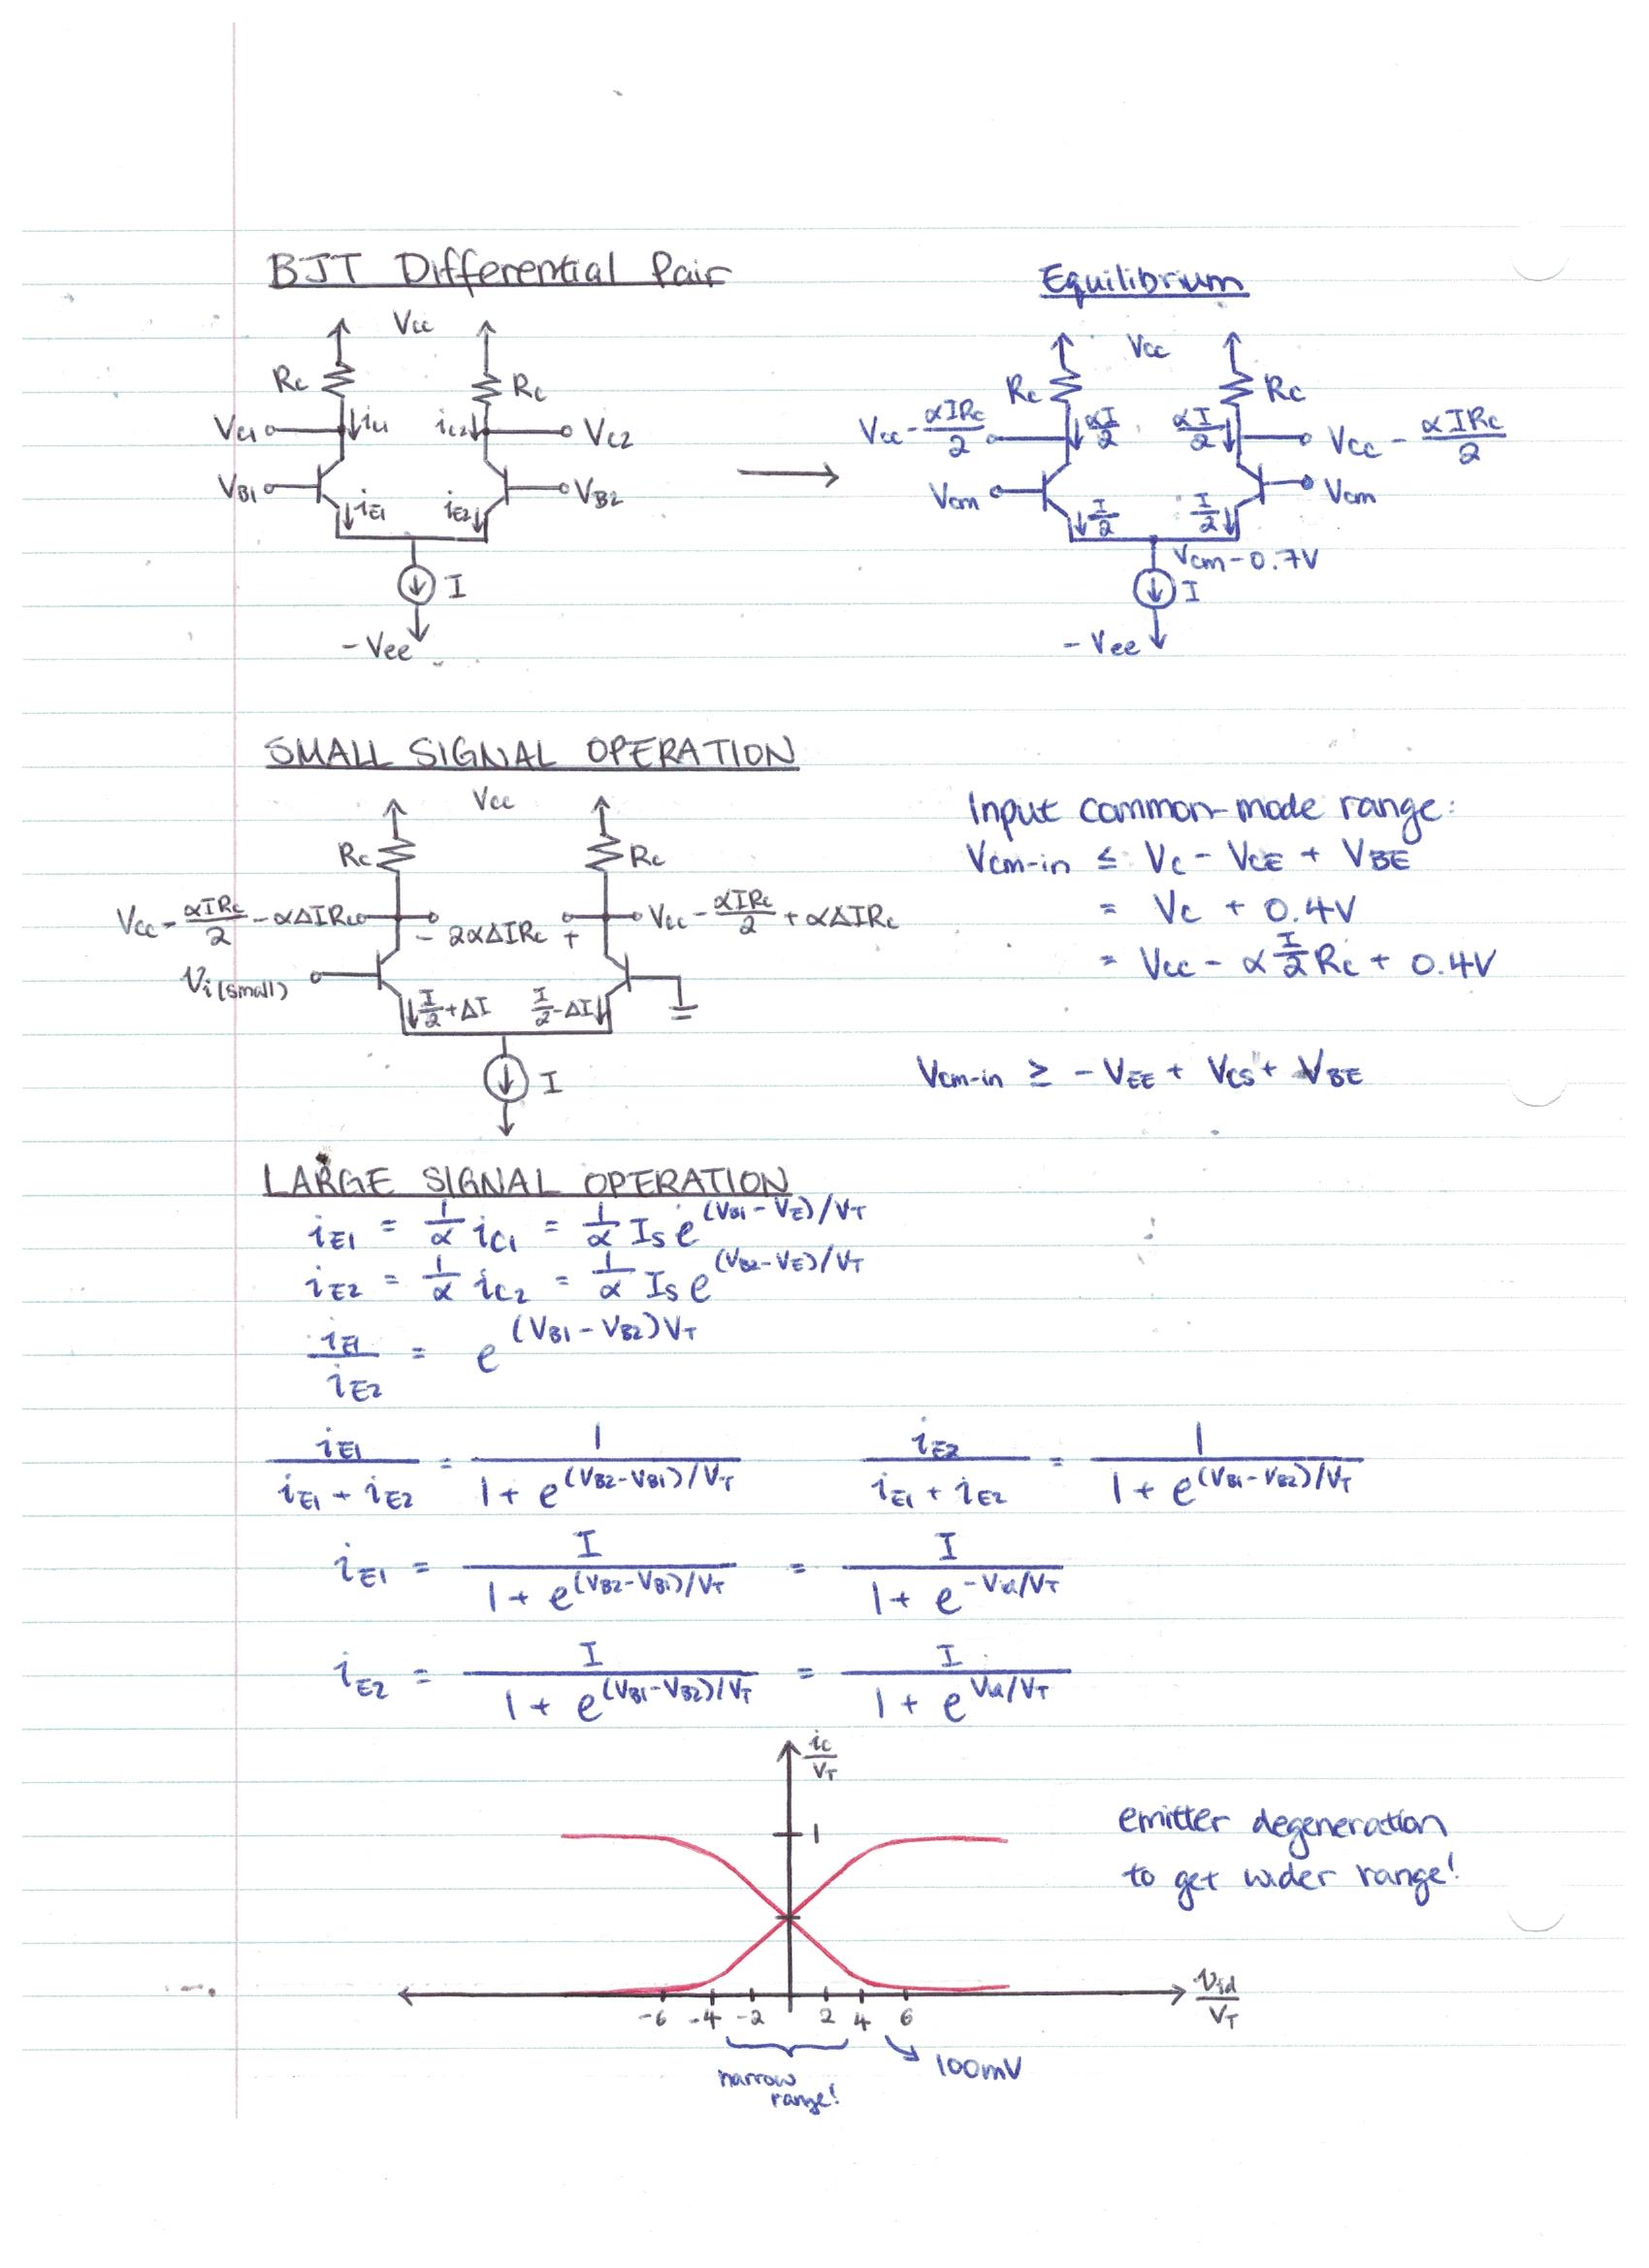 BJT Differential Pair
Vcc
Rc
Rc
Vc1
ic1
ic2
Vc2
VB1
VB2
iE1
iE2
I
-Vee
Equilibrium
Vcc
Rc
Rc
Vcc - αIRc/2
αI/2
αI/2
Vcc - αIRc/2
Vcm
Vcm
I/2
I/2
Vcm-0.7V
I
- Vee
SMALL SIGNAL OPERATION
Vcc
Rc
Rc
Vcc - αIRc/2 - αΔIRc
- 2αΔIRc +
Vcc - αIRc/2 + αΔIRc
Vi(small)
I/2+ΔI
I/2-ΔI
I
Input common-mode range:
Vcm-in ≤ Vc - VCE + VBE
= Vc + 0.4V
= Vcc - α I/2 Rc + 0.4V
Vcm-in ≥ - VEE + VCS + VBE
LARGE SIGNAL OPERATION
iE1 = 1/α iC1 = 1/α Is e^(VB1-VE)/VT
iE2 = 1/α iC2 = 1/α Is e^(VB2-VE)/VT
iE1/iE2 = e^(VB1-VB2)VT
iE1/(iE1 + iE2) = 1/(1 + e^(VB2-VB1)/VT)
iE2/(iE1 + iE2) = 1/(1 + e^(VB1-VB2)/VT)
iE1 = I/(1 + e^(VB2-VB1)/VT) = I/(1 + e^-Vid/VT)
iE2 = I/(1 + e^(VB1-VB2)/VT) = I/(1 + e^Vid/VT)
ic/VT
1
emitter degeneration
to get wider range!
-6 -4 -2 2 4 6
vid/VT
narrow
range!
100mV